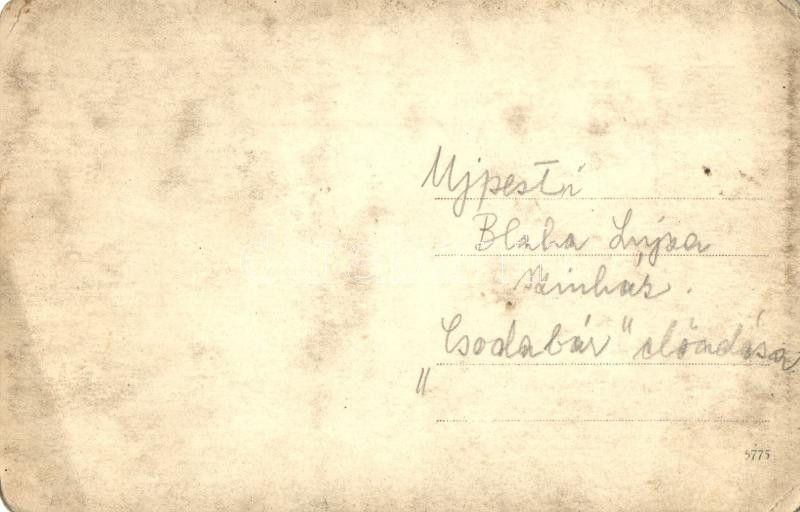 Ujpesti
Blaha Lujza
szinház.
„Csodabár" előadása
5775